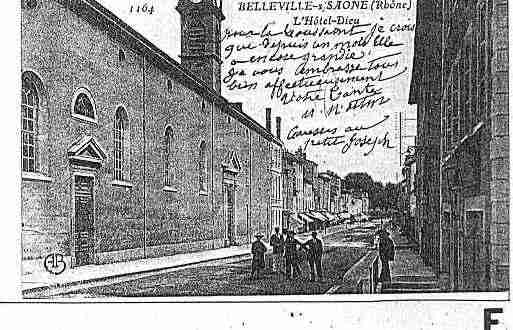 1164
BELLEVILLE-s/SAONE (Rhône)
L'Hôtel-Dieu
pour la Toussaint je crois
que depuis un mois elle
a encore grandie
Je vous embrasse tous
bien affectueusement
Votre Tante
Caresses au
petit Joseph
AB
E